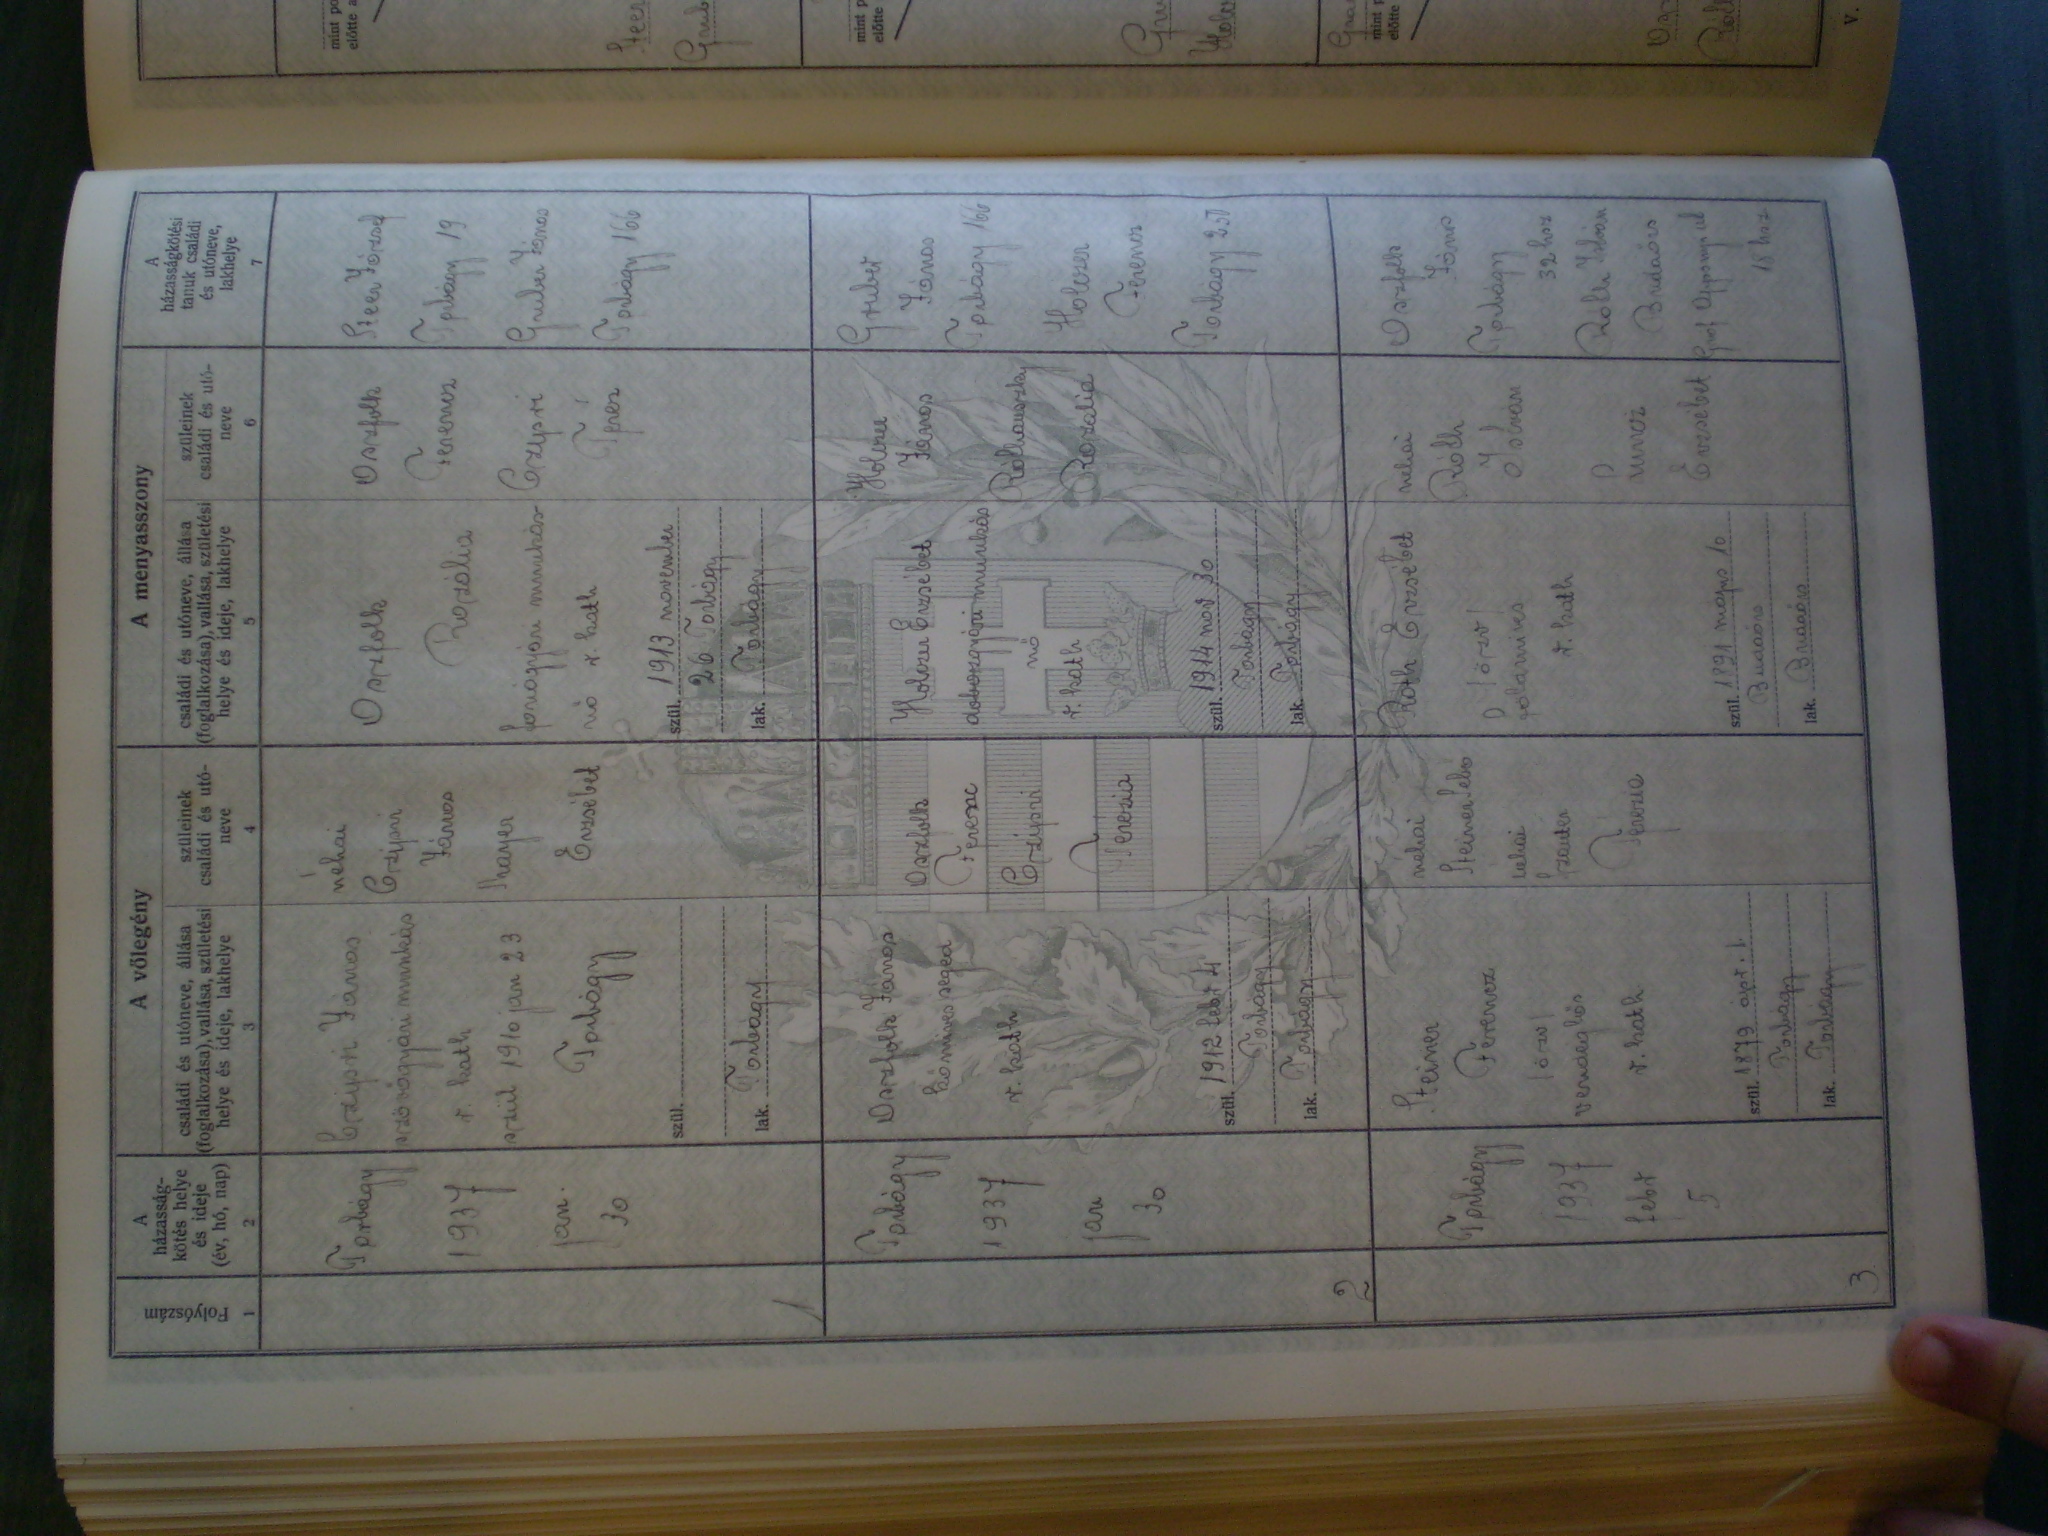 A menyasszony
A vőlegény
Folyószám
1
A
házasság-
kötés helye
és ideje
(év, hó, nap)
2
családi és utóneve, állása
(foglalkozása), vallása, születési
helye és ideje, lakhelye
3
szüleinek
családi és utó-
neve
4
családi és utóneve, állása
(foglalkozása), vallása, születési
helye és ideje, lakhelye
5
szüleinek
családi és utó-
neve
6
A
házasságkötési
tanuk családi
és utóneve,
lakhelye
7
1
Torbágy
1937
jan.
30
Czipri János
szövőgyári munkás
r. kath
szül 1910 jan 23
Torbágy
szül.
lak. Torbágy
néhai
Czipri
János
Mayer
Erzsébet
Oszfolk
Rozália
fonógyári munkás-
nő r. kath
szül. 1913 november
26 Torbágy
lak. Torbágy
Oszfolk
Ferencz
Czipri
Teréz
Steer József
Torbágy 19
Gruber János
Torbágy 166
2
Torbágy
1937
jan
30
Oszfolk János
kőmives segéd
r. kath
szül. 1912 febr 4
Torbágy
lak. Torbágy
Oszfolk
Ferenc
Czipri
Terézia
Holczer Erzsébet
dobozgyári munkás
nő
r. kath
szül. 1914 nov 30
Torbágy
lak. Torbágy
Holczer
János
Rozália
Gruber
János
Torbágy 166
Holczer
Ferencz
Torbágy
3
Torbágy
1937
febr
5
Steiner
Ferencz
özv
vendéglős
r. kath
szül. 1879 ápr. 1.
Torbágy
lak. Torbágy
néhai
Steiner
néhai
Terézia
Róth Erzsébet
özv
r. kath
szül. 1891 május 10
Budaörs
lak. Budaörs
néhai
Róth
István
Erzsébet
Oszfolk
János
Torbágy
32 hsz
Róth István
Budaörs
Gróf Apponyi ut
18 hsz
mint
előtte
mint
előtte
mint
előtte
V.